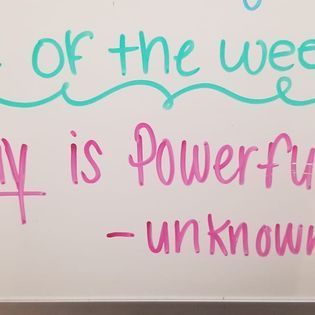 of the wee
is Powerfu
-unknown